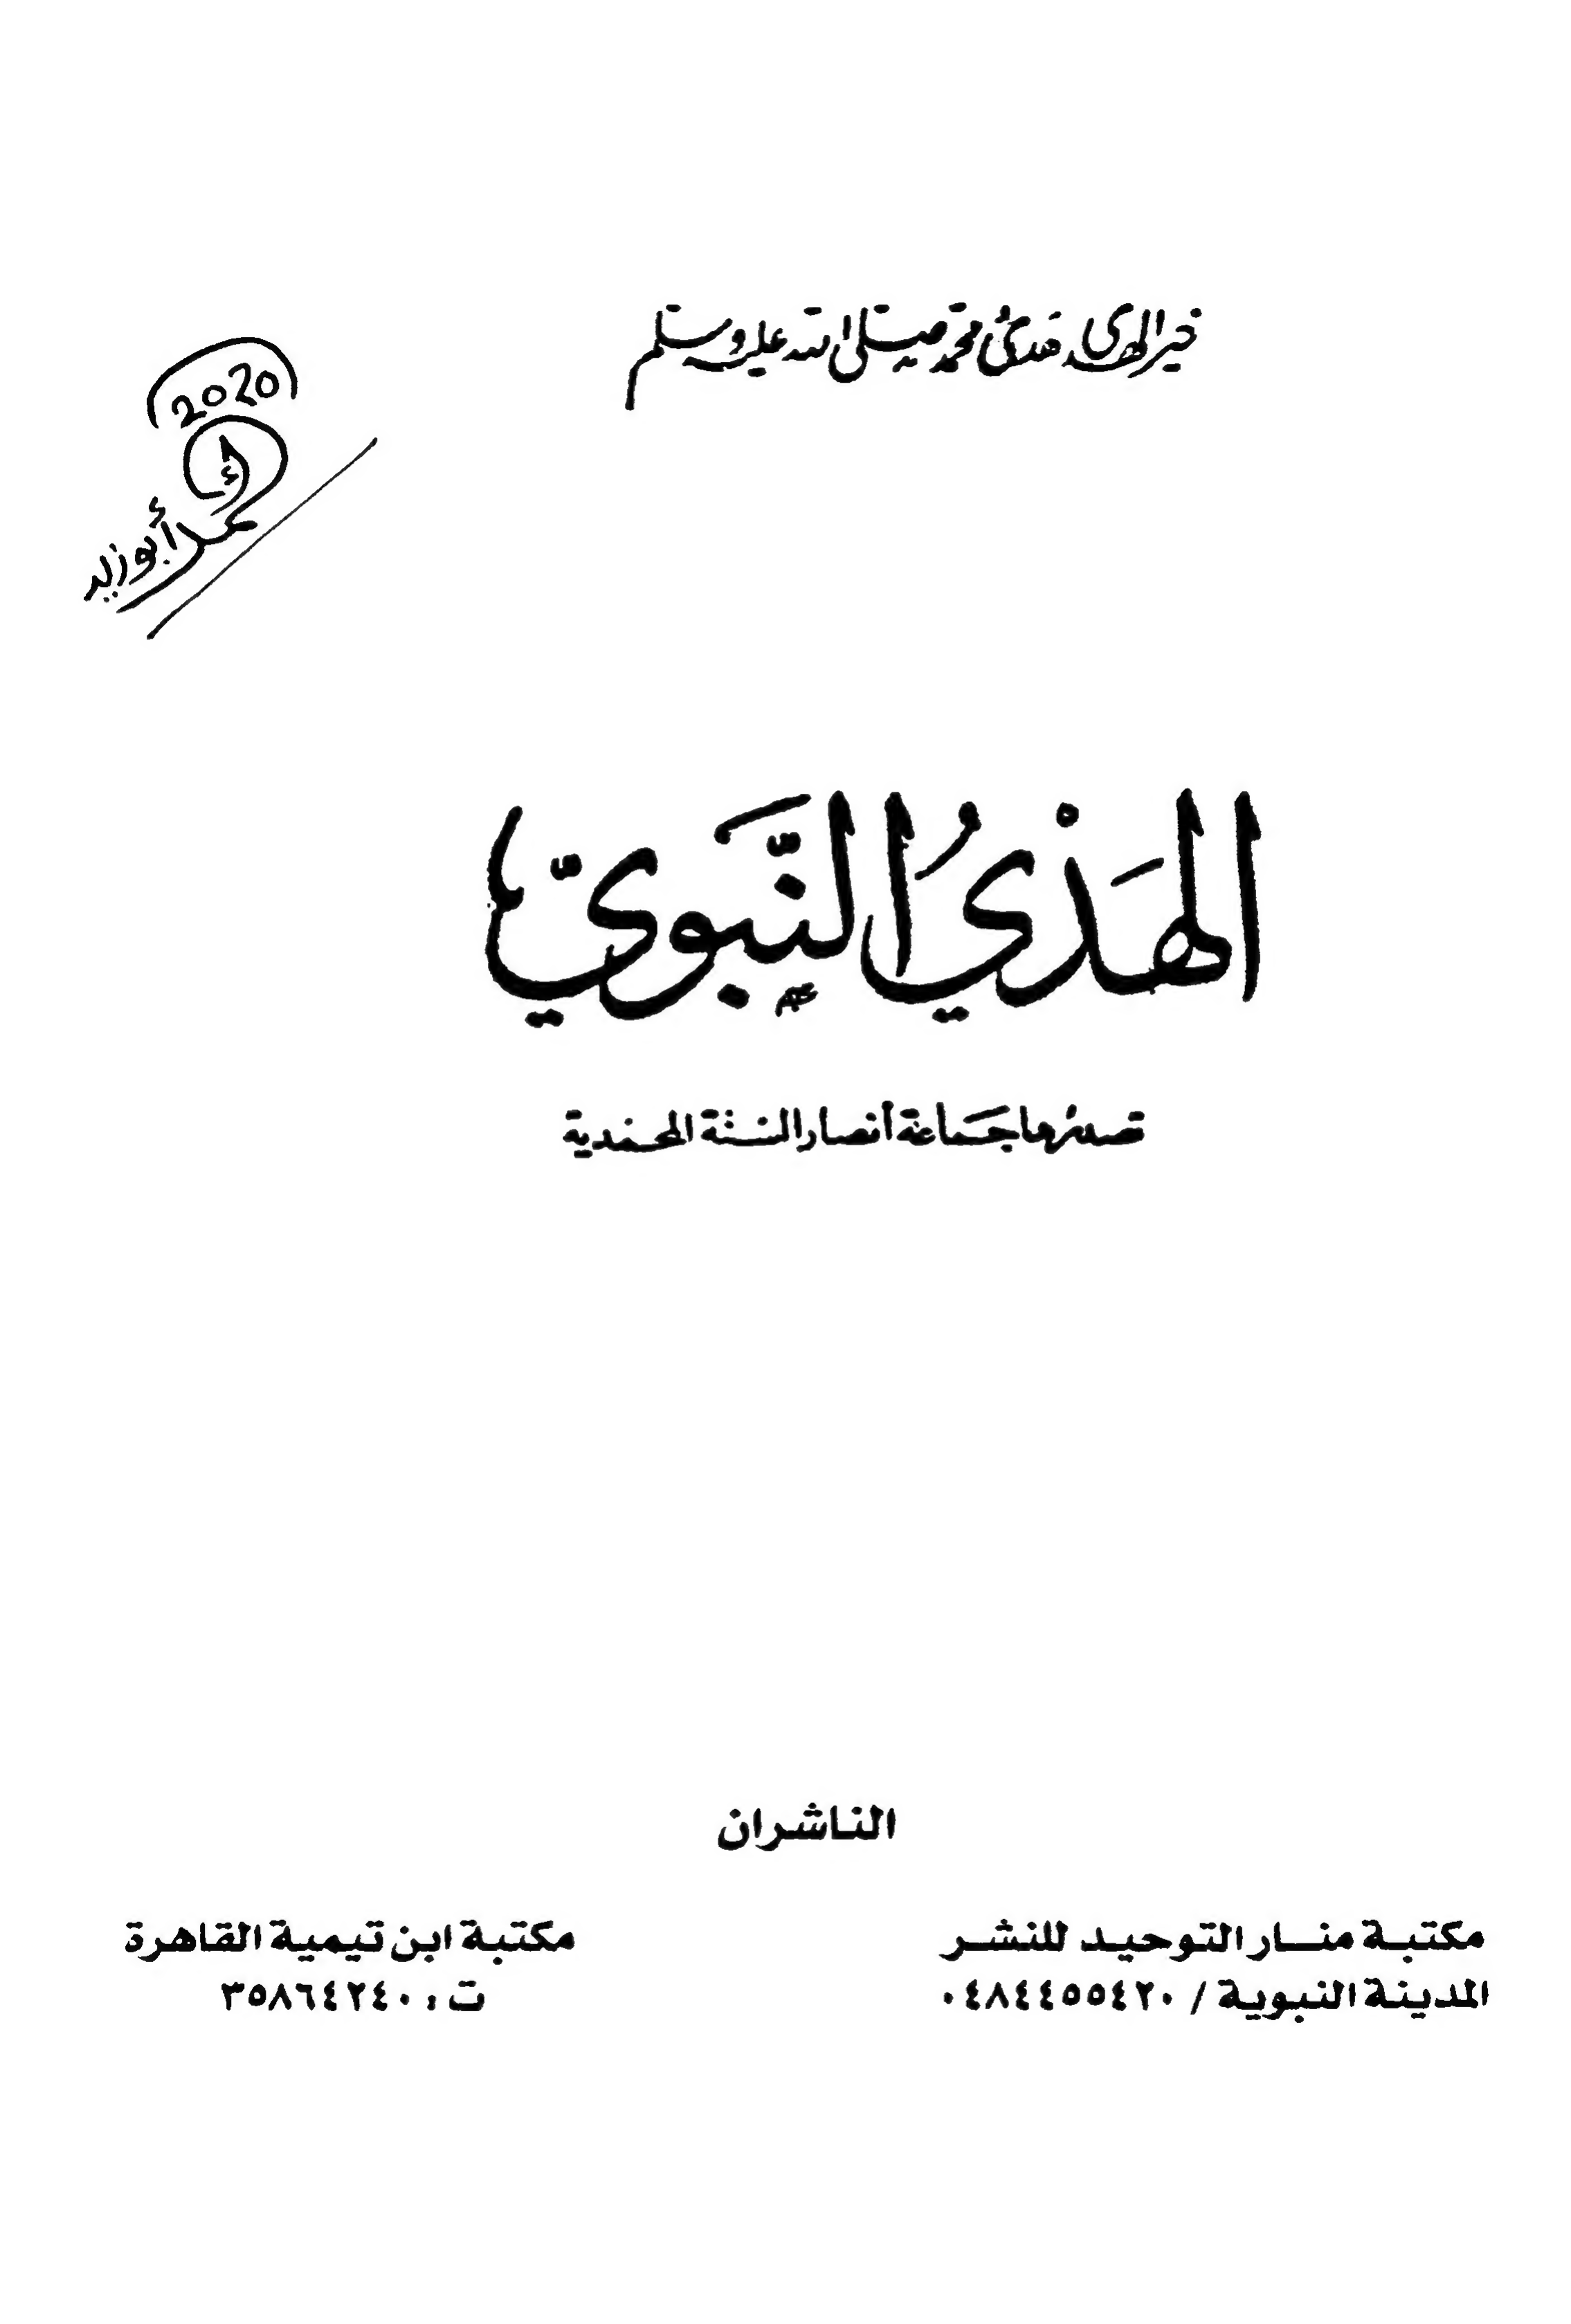 خير الهدى هدى محمد صلى الله عليه وسلم
2020
أبو زيد
الهَدْيُ النَّبَوِيّ
تصدرها جماعة أنصار السنة المحمدية
الناشران
مكتبة منار التوحيد للنشر
المدينة النبوية / ٠٤٨٤٤٥٥٤٢٠
مكتبة ابن تيمية القاهرة
ت : ٣٥٨٦٤٢٤٠